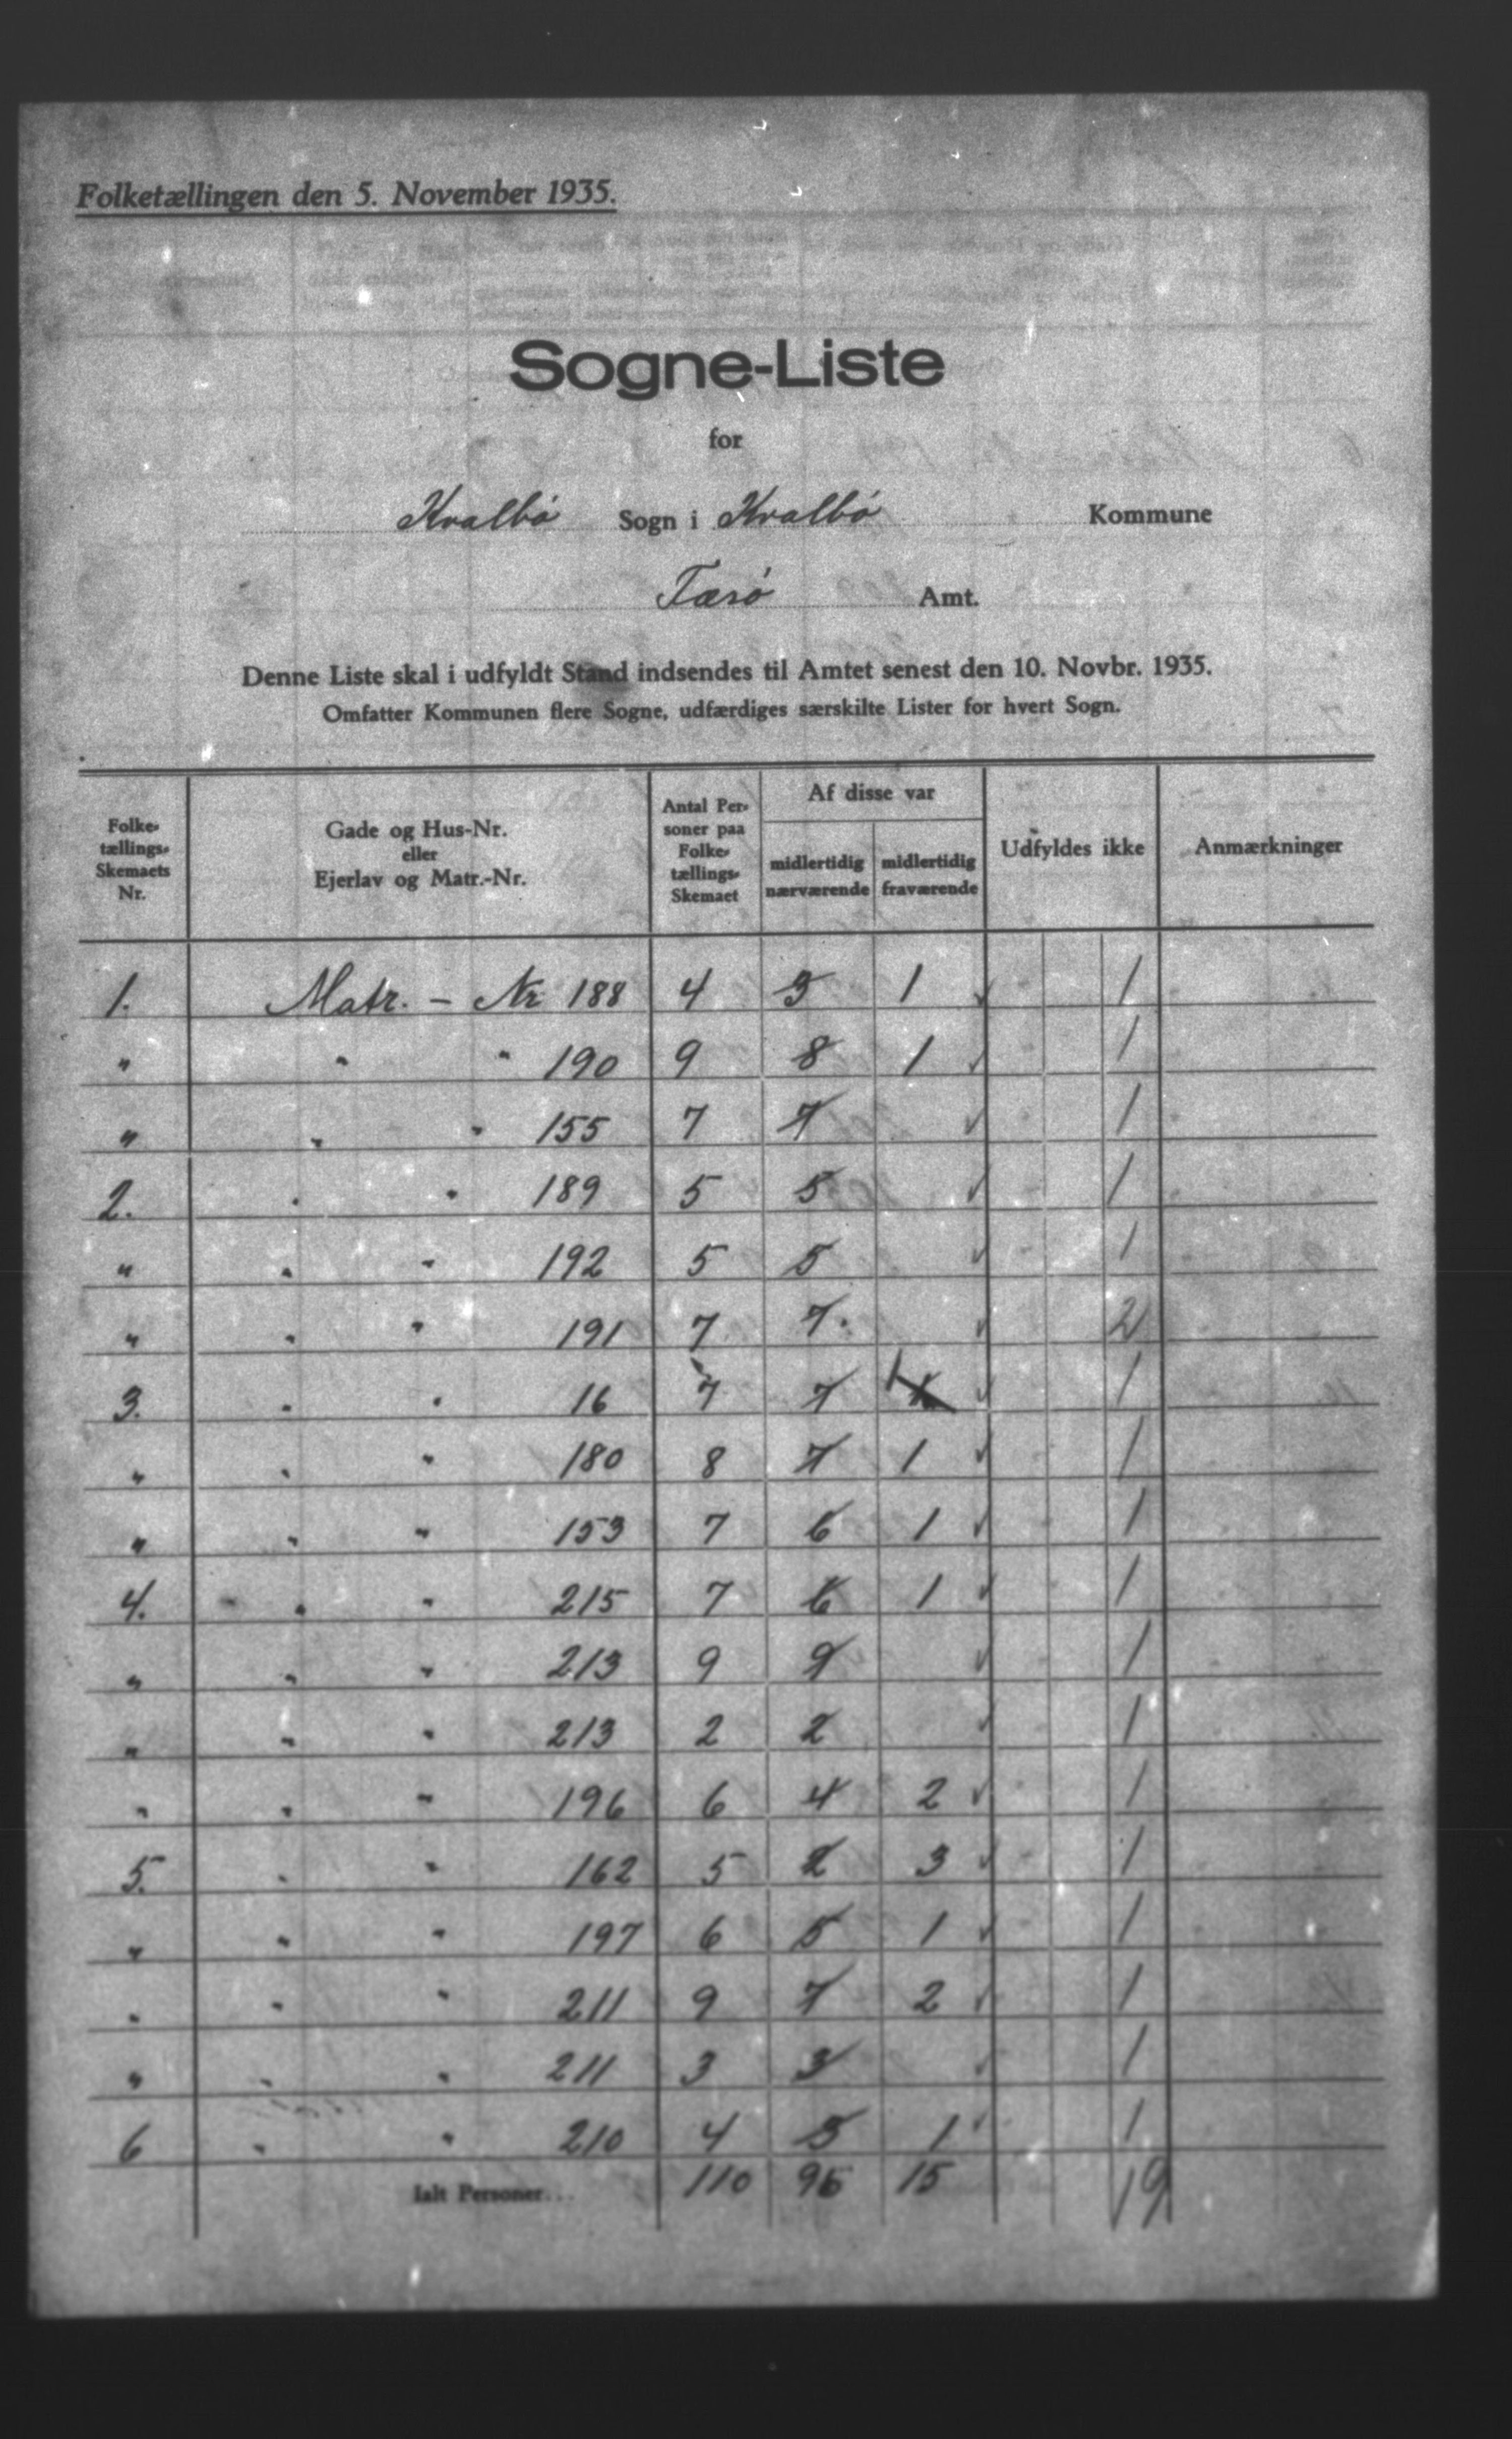 Folketællingen den 5. November 1935.
Sogne-Liste
for
Kvalbø Sogn i Kvalbø Kommune
Færø Amt.
Denne Liste skal i udfyldt Stand indsendes til Amtet senest den 10. Novbr. 1935.
Omfatter Kommunen flere Sogne, udfærdiges særskilte Lister for hvert Sogn.
Folke-
tællings-
Skemaets
Nr.
Gade og Hus-Nr.
eller
Ejerlav og Matr.-Nr.
Antal Per-
soner paa
Folke-
tællings-
Skemaet
Af disse var
midlertidig
nærværende
midlertidig
fraværende
Udfyldes ikke
Anmærkninger
1. Matr. - Nr 188 4 3 1 ✓ 1
" " " 190 9 8 1 ✓ 1
" " " 155 7 7 ✓ 1
2. " " 189 5 5 ✓ 1
" " " 192 5 5 ✓ 1
" " " 191 7 7. ✓ 2
3. " " 16 7 7 ✓ 1
" " " 180 8 7 1 ✓ 1
" " " 153 7 6 1 ✓ 1
4. " " 215 7 6 1 ✓ 1
" " " 213 9 9 ✓ 1
" " " 213 2 2 ✓ 1
" " " 196 6 4 2 ✓ 1
5. " " 162 5 2 3 ✓ 1
" " " 197 6 5 1 ✓ 1
" " " 211 9 7 2 ✓ 1
" " " 211 3 3 ✓ 1
6 " " 210 4 3 1 ✓ 1
Ialt Personer... 110 95 15 19